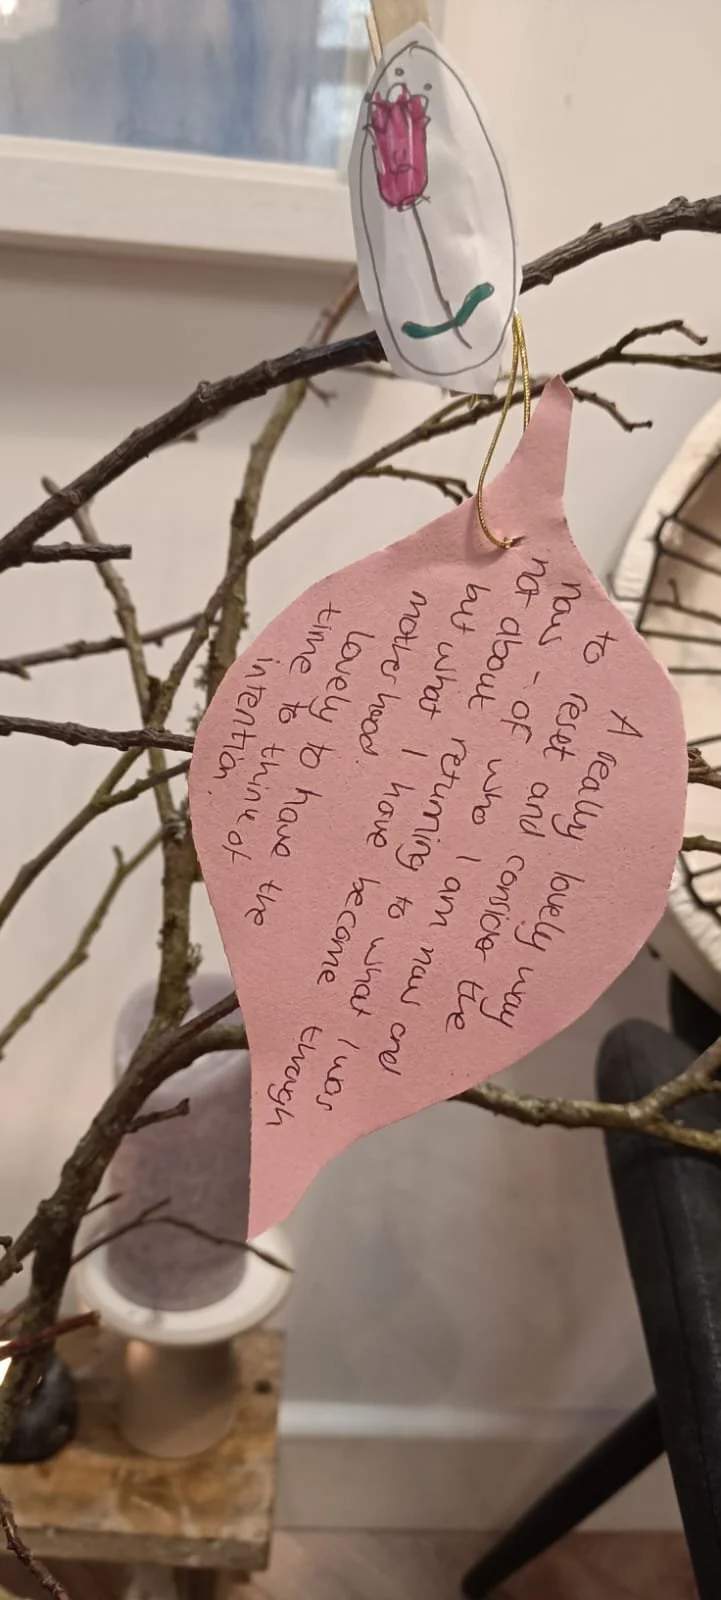 A really lovely way
to reset and consider the
now - of who I am now and
not about returning to what I was
but what I have become through
motherhood.
lovely to have the
time to think of
intention.